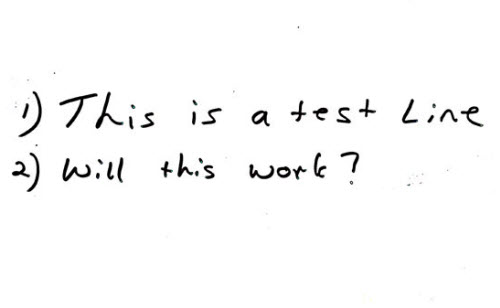 1) This is a test Line
2) Will this work?